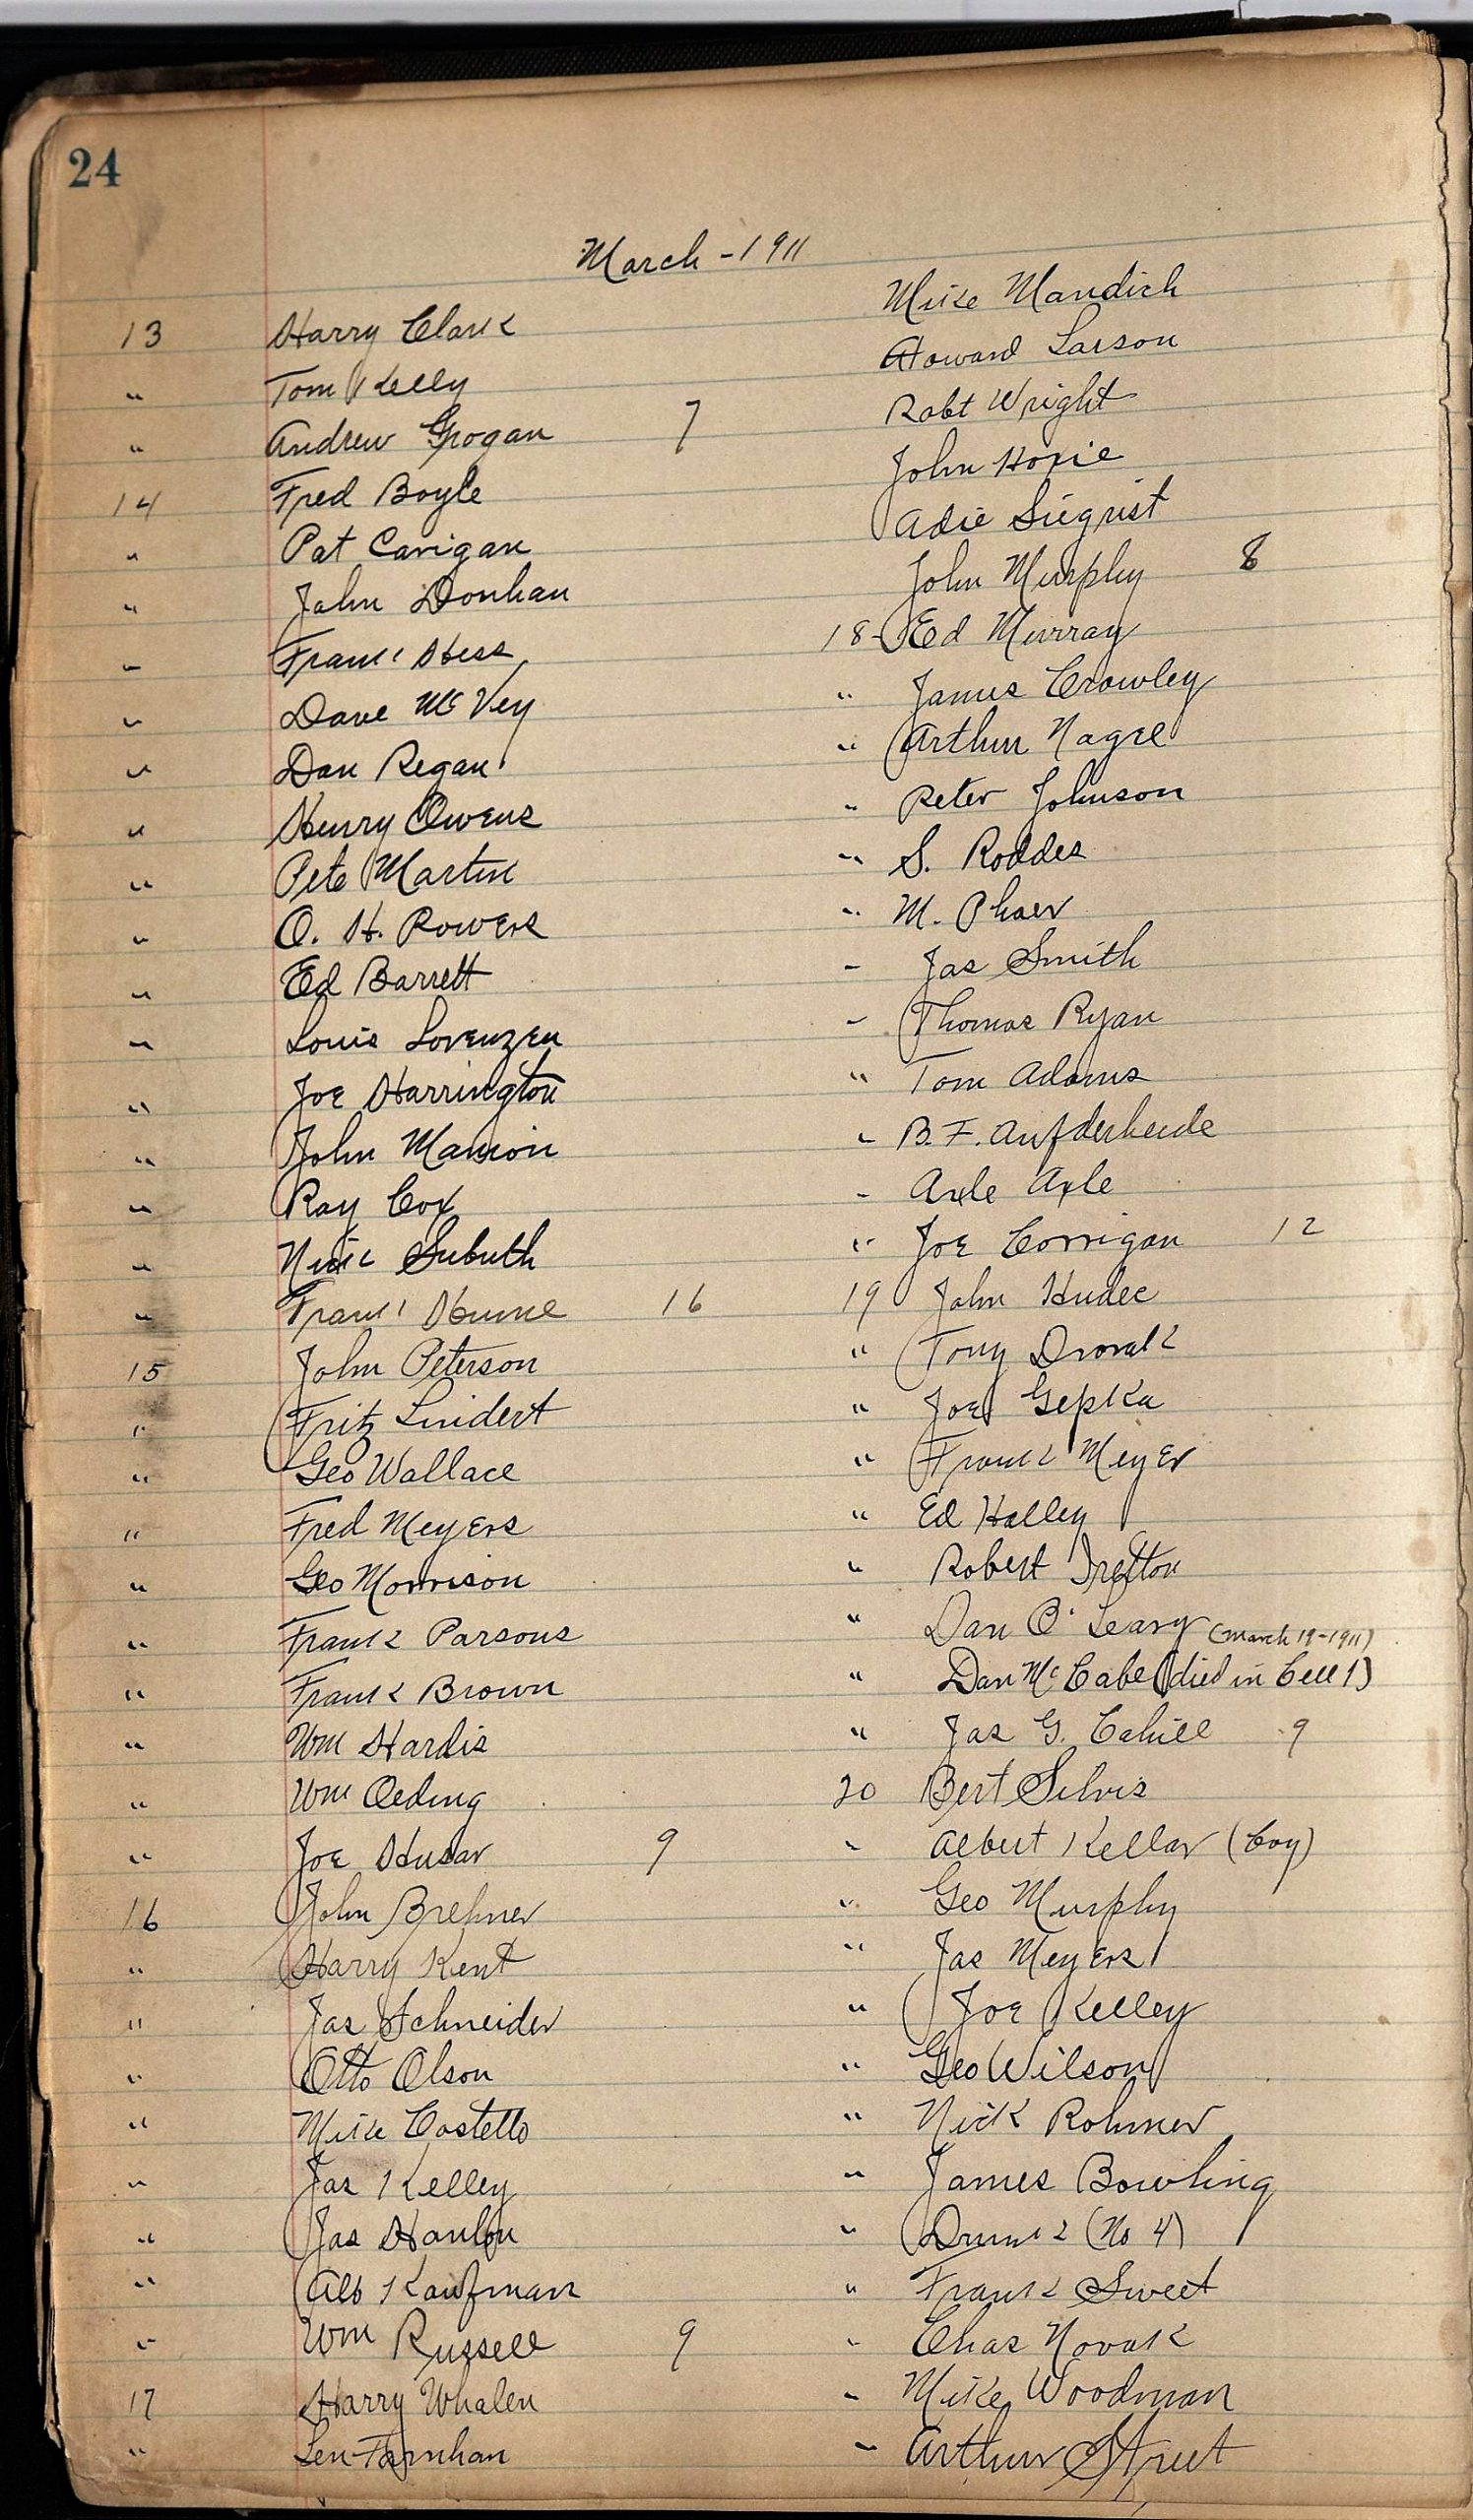 24
March - 1911
13 Harry Clark
" Tom Kelly
" Andrew Grogan 7
14 Fred Boyle
" Pat Carigan
" John Donhan
" Frank Hess
" Dave McVey
" Dan Regan
" Henry Owens
" Pete Martin
" O. H. Powers
" Ed Barrett
" Louis Lorenzen
" Joe Harrington
" John Manion
" Ray Cox
" Nick
" Frank Hume 16
15 John Peterson
" Fritz Lindert
" Geo Wallace
" Fred Meyers
" Geo Morrison
" Frank Parsons
" Frank Brown
" Wm Hardis
" Wm Oeding
" Joe Husar 9
16 John Brehmer
" Harry Kent
" Jas Schneider
" Otto Olson
" Mike Costello
" Jas Kelley
" Jas Hanlon
" Alb Kaufman
" Wm Russell 9
17 Harry Whalen
" Len Farnhan
Mike Mandich
Howard Larson
Robt Wright
John Hoxie
Adie Siegrist
John Murphy 8
18- Ed Murray
" James Crowley
" Arthur Nagel
" Peter Johnson
" S. Roddes
" M. Phaer
" Jas Smith
" Thomas Ryan
" Tom Adams
" B. F. Aufderheide
" Axle Axle
" Joe Corrigan 12
19 John Hudec
" Tony Dvorak
" Joe Gepka
" Frank Meyer
" Ed Halley
" Robert
" Dan O'Leary (March 19-1911)
" Dan McCabe (died in Cell 1)
" Jas G. Cahill 9
20 Bert Silvis
" Albert Kellar (boy)
" Geo Murphy
" Jas Meyers
" Joe Kelley
" Geo Wilson
" Nick Rohmer
" James Bowling
" Drunk (No 4)
" Frank Sweet
" Chas Novak
" Mike Woodman
" Arthur Street